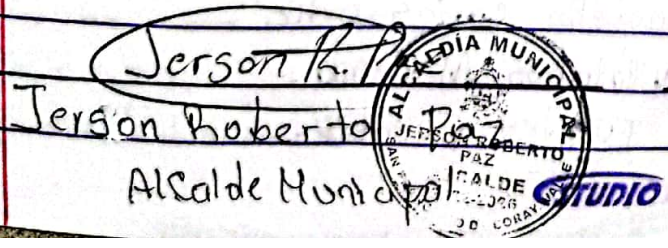 Jerson R. P
Jerson Roberto Paz
Alcalde Municipal
ALCALDÍA MUNICIPAL
JERSON ROBERTO
PAZ
ALCALDE
CORAY, VALLE
STUDIO